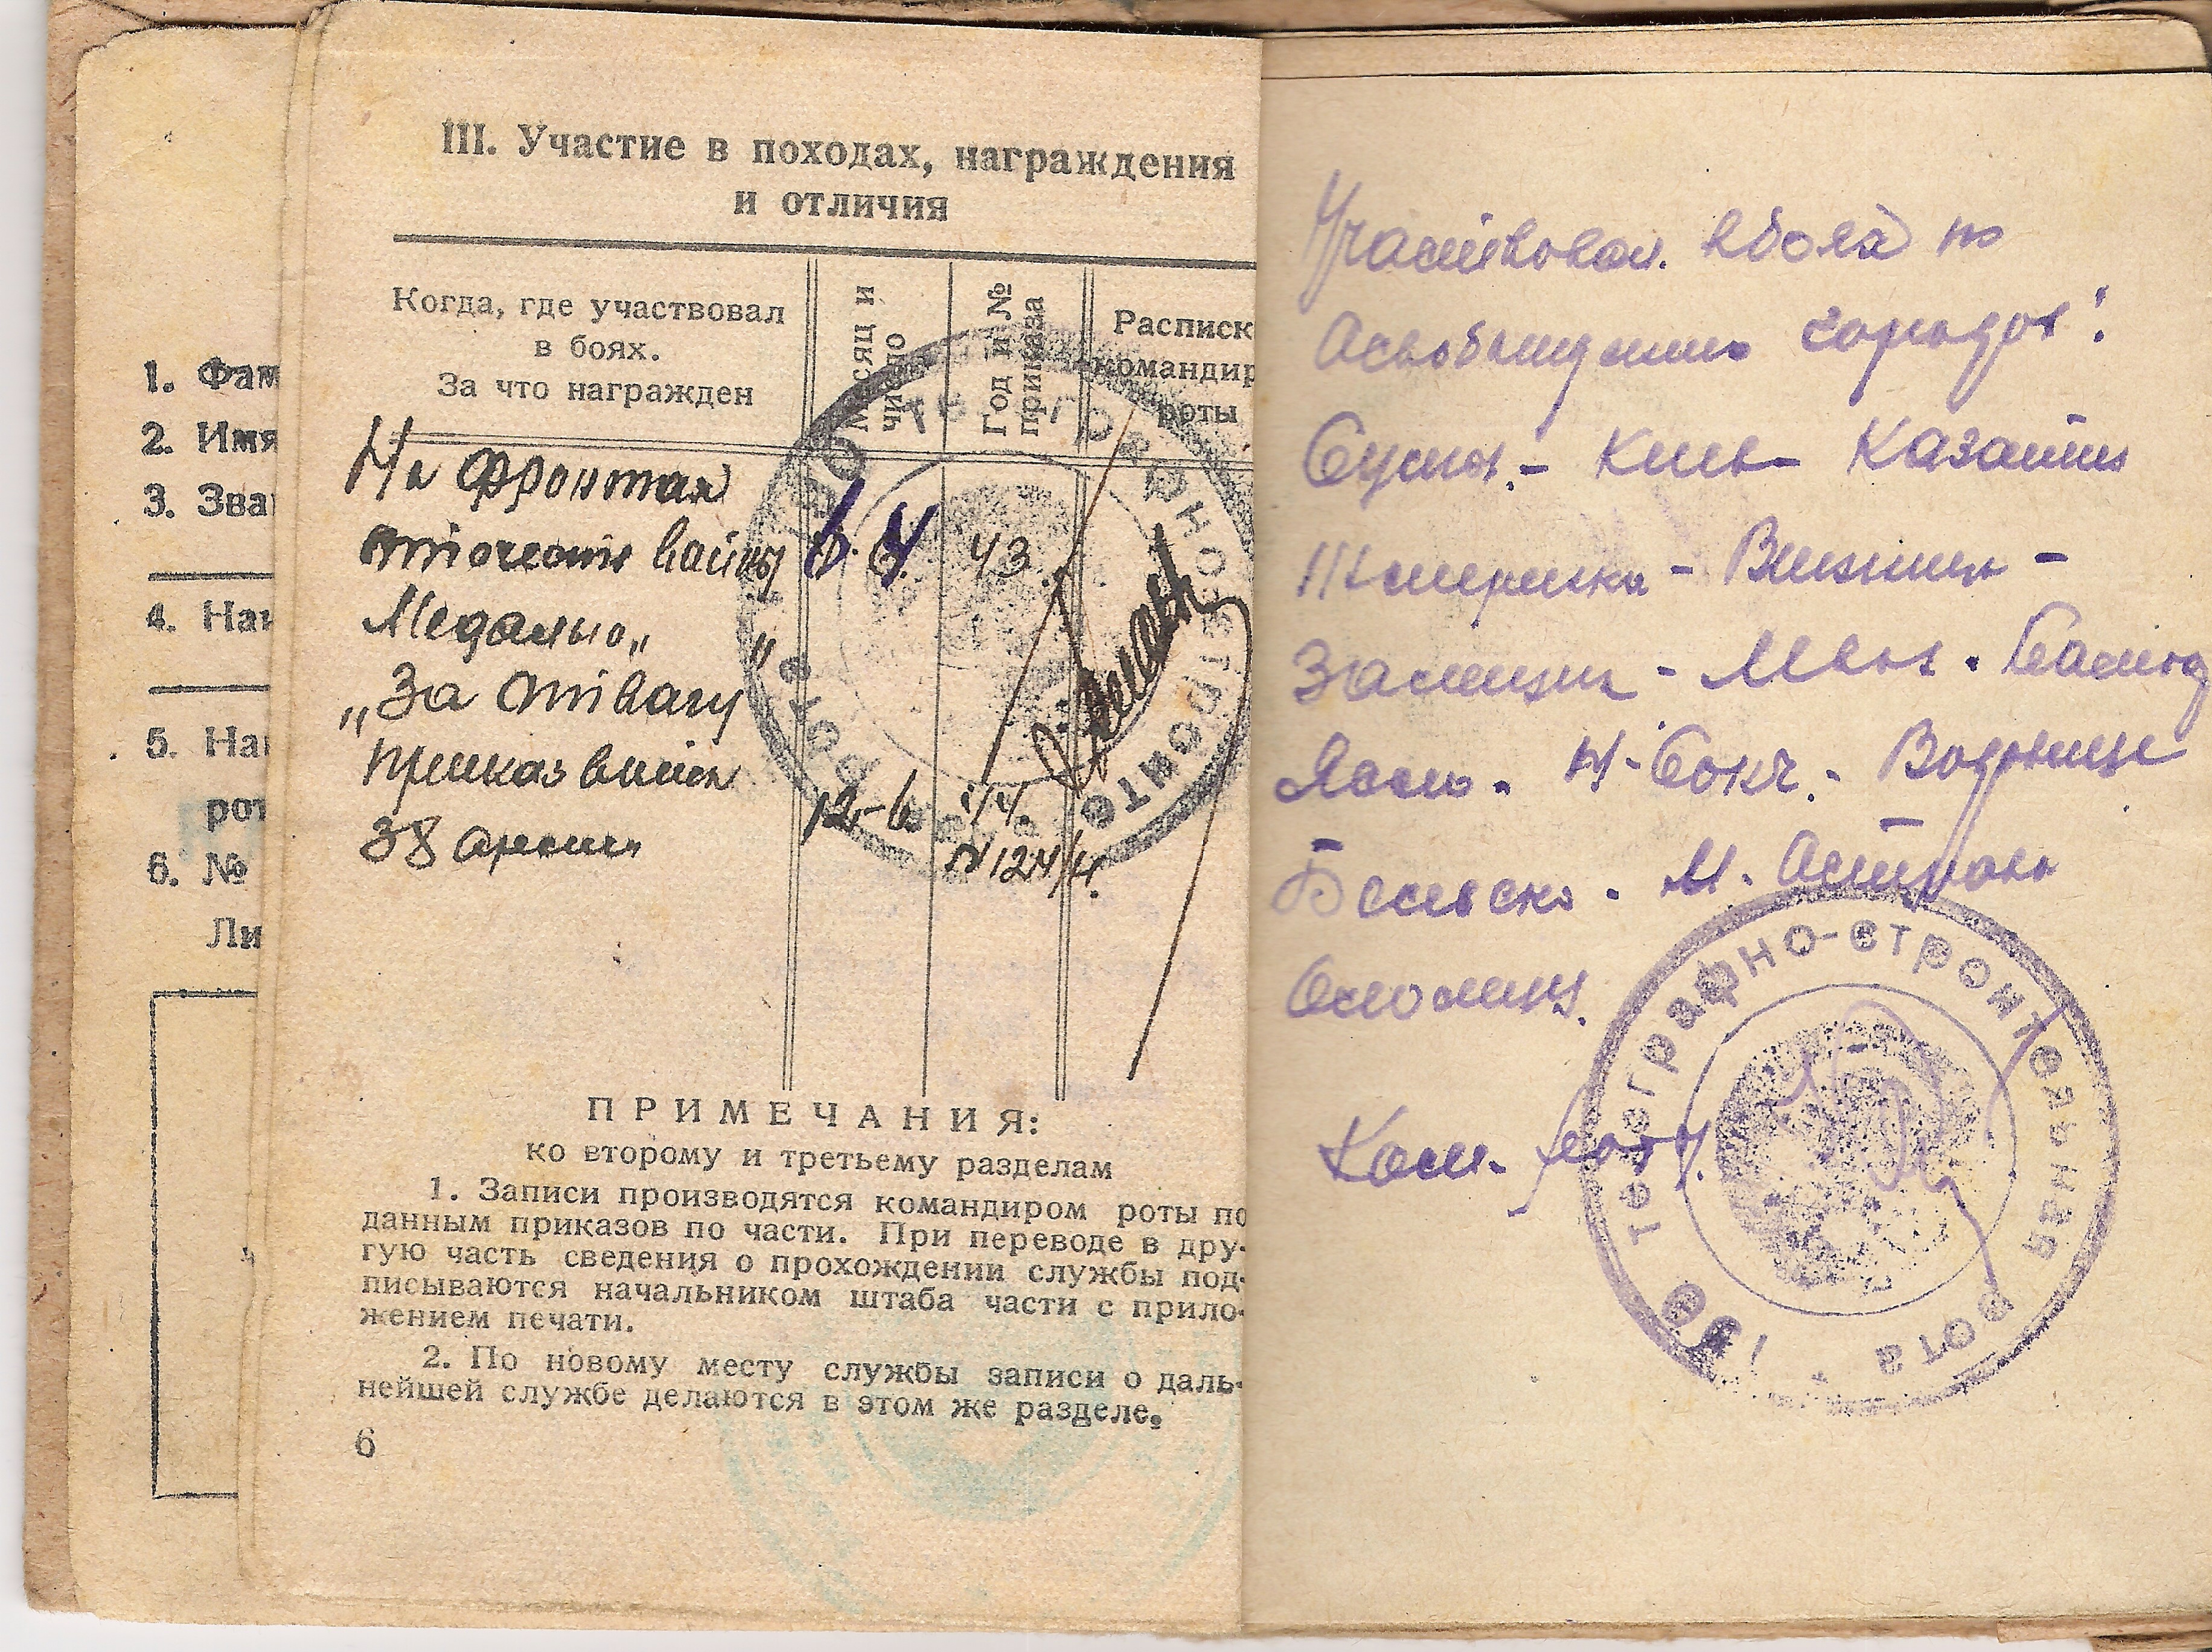 1. Фам
2. Имя
3. Зва
4. Наи
5. Наи
рот
6. №
Ли
III. Участие в походах, награждения
и отличия
Когда, где участвовал
в боях.
За что награжден
Месяц и
число
Год и №
приказа
Расписк
командир
роты
На фронтах
войны 43
Медалью „ "
„За отвагу
Приказ войск
38 армии 12-6. 44.
N 124/н.
ПРИМЕЧАНИЯ:
ко второму и третьему разделам
1. Записи производятся командиром роты по
данным приказов по части. При переводе в дру-
гую часть сведения о прохождении службы под-
писываются начальником штаба части с прило-
жением печати.
2. По новому месту службы записи о даль-
нейшей службе делаются в этом же разделе.
6
Участвовал в боях по
городов:
Сумы - Киев - Казатин
Жмеринка - Винница -
- Львов -
Ясло -
Бельско - М. Острава
Оломоуц.
Ком. роты
телеграфно-строительная рота